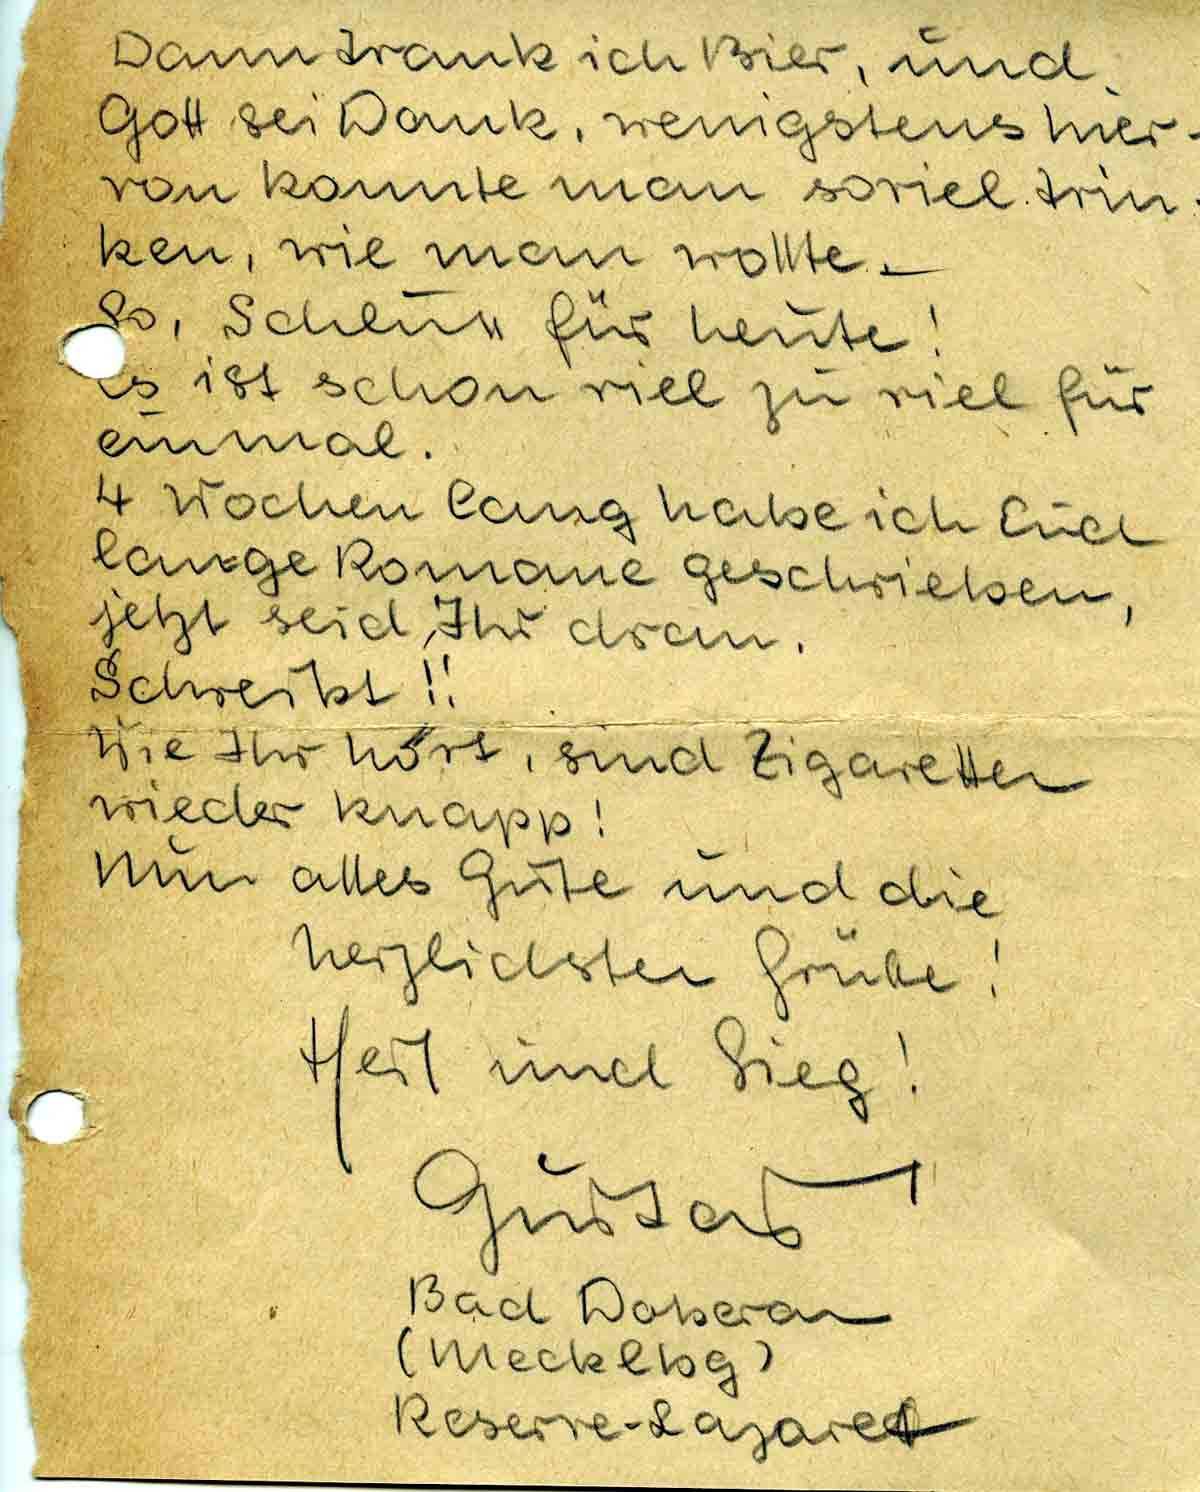 Dann trank ich Bier, und
Gott sei Dank, wenigstens hier-
von konnte man soviel trin-
ken, wie man wollte.–
So, Schluß für heute!
Es ist schon viel zu viel für
einmal.
4 Wochen lang habe ich Euch
lange Romane geschrieben,
jetzt seid Ihr dran.
Schreibt!!
Wie Ihr hört, sind Zigaretten
wieder knapp!
Nun alles Gute und die
herzlichsten Grüße!
Heil und Sieg!
Gustav
Bad Doberan
(Mecklbg)
Reserve-Lazarett